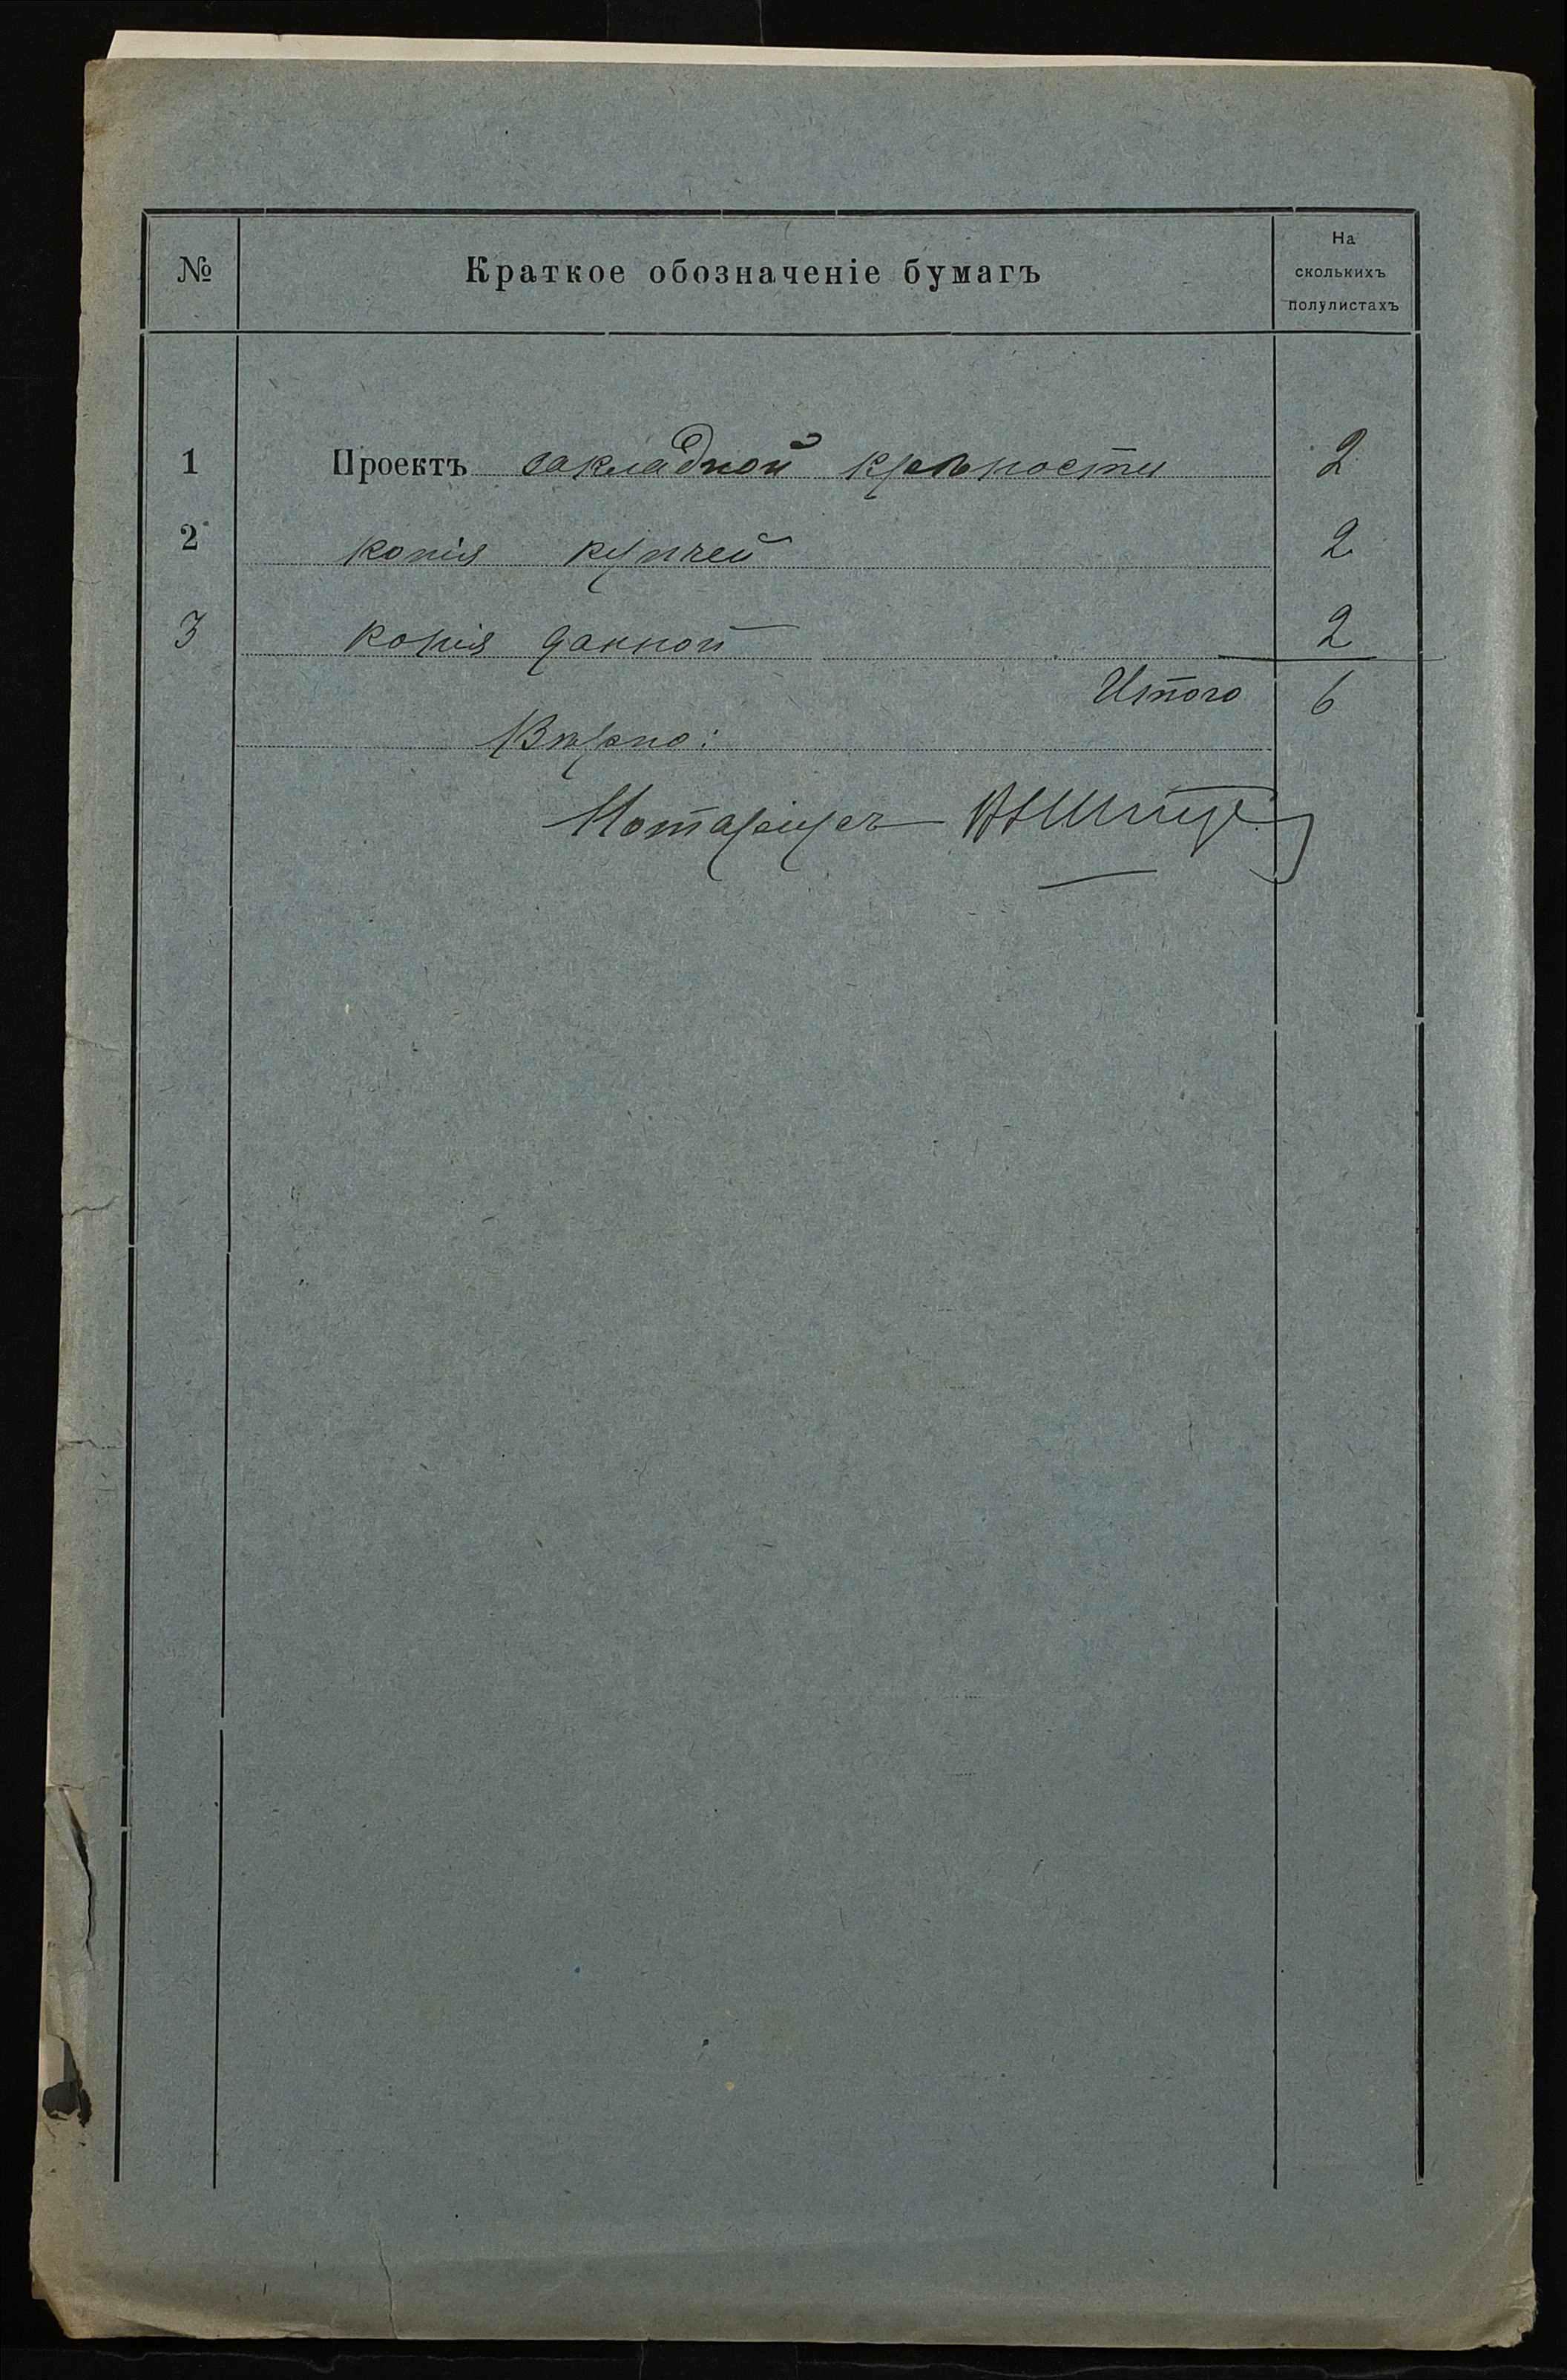 № Краткое обозначеніе бумагъ На
сколькихъ
полулистахъ
1 Проектъ закладной крѣпости 2
2 копія купчей 2
3 копія данной 2
Итого 6
Вѣрно:
Нотаріусъ